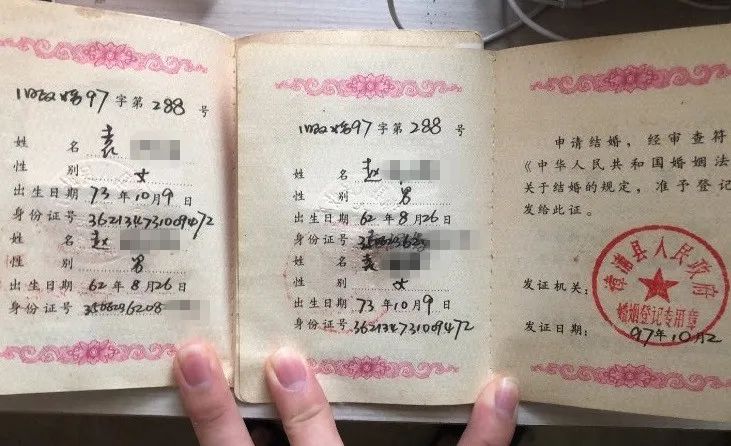 97字第288号
姓 名 袁
性 别 女
出生日期 73年10月9日
身份证号 362134731009472
姓 名 赵
性 别 男
出生日期 62年8月26日
身份证号 3506236208
97字第288号
姓 名 赵
性 别 男
出生日期 62年8月26日
身份证号
姓 名 袁
性 别 女
出生日期 73年10月9日
身份证号 362134731009472
申请结婚，经审查符
《中华人民共和国婚姻法
关于结婚的规定，准予登记
发给此证。
发证机关：
漳浦县人民政府
婚姻登记专用章
发证日期：97年10月2